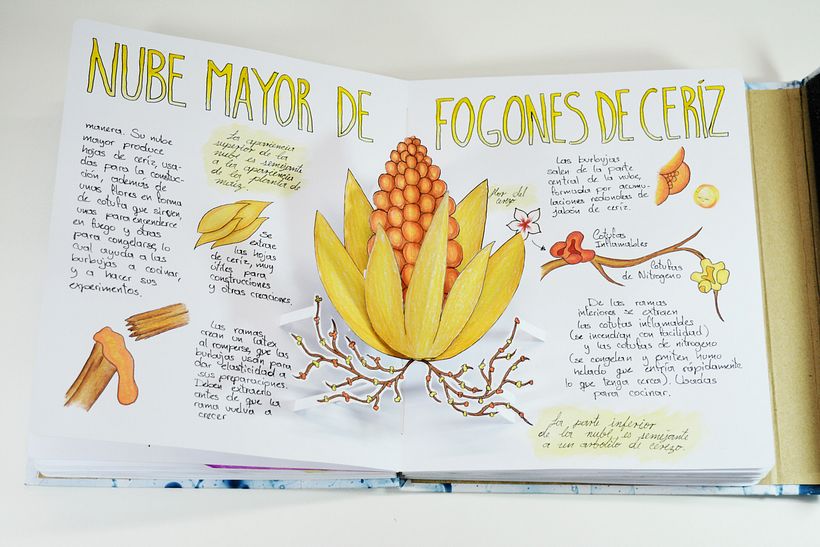 NUBE MAYOR DE
FOGONES DE CERÍZ
manera. Su nube
mayor produce
hojas de ceríz, usa-
das para la construc-
ción, además de
unas flores en forma
de cotufa que sirven,
unas para encenderse
en fuego y otras
para congelarse, lo
cual ayuda a las
burbujas a cocinar,
y a hacer sus
experimentos.
La apariencia
superior de la
nube es semejante
a la apariencia
de la planta de
maíz.
Se
extrae
las hojas
de ceríz, muy
útiles para
construcciones
y otras creaciones.
Las ramas,
crean un latex
al romperse, que las
burbujas usan para
dar elasticidad a
sus preparaciones.
Deben extraerlo
antes de que la
rama vuelva a
crecer
Flor del
cerezo
Las burbujas
salen de la parte
central de la nube,
formada por acumu-
laciones redondas de
jabón de ceríz.
Cotufas
Inflamables
Cotufas
de Nitrogeno
De las ramas
inferiores se extraen
las cotufas inflamables
(se incendian con facilidad)
y las cotufas de nitrogeno
(se congelan y emiten humo
helado que enfría rápidamente
lo que tenga cerca). Usadas
para cocinar.
La parte inferior
de la nube es semejante
a un arbolito de cerezo.